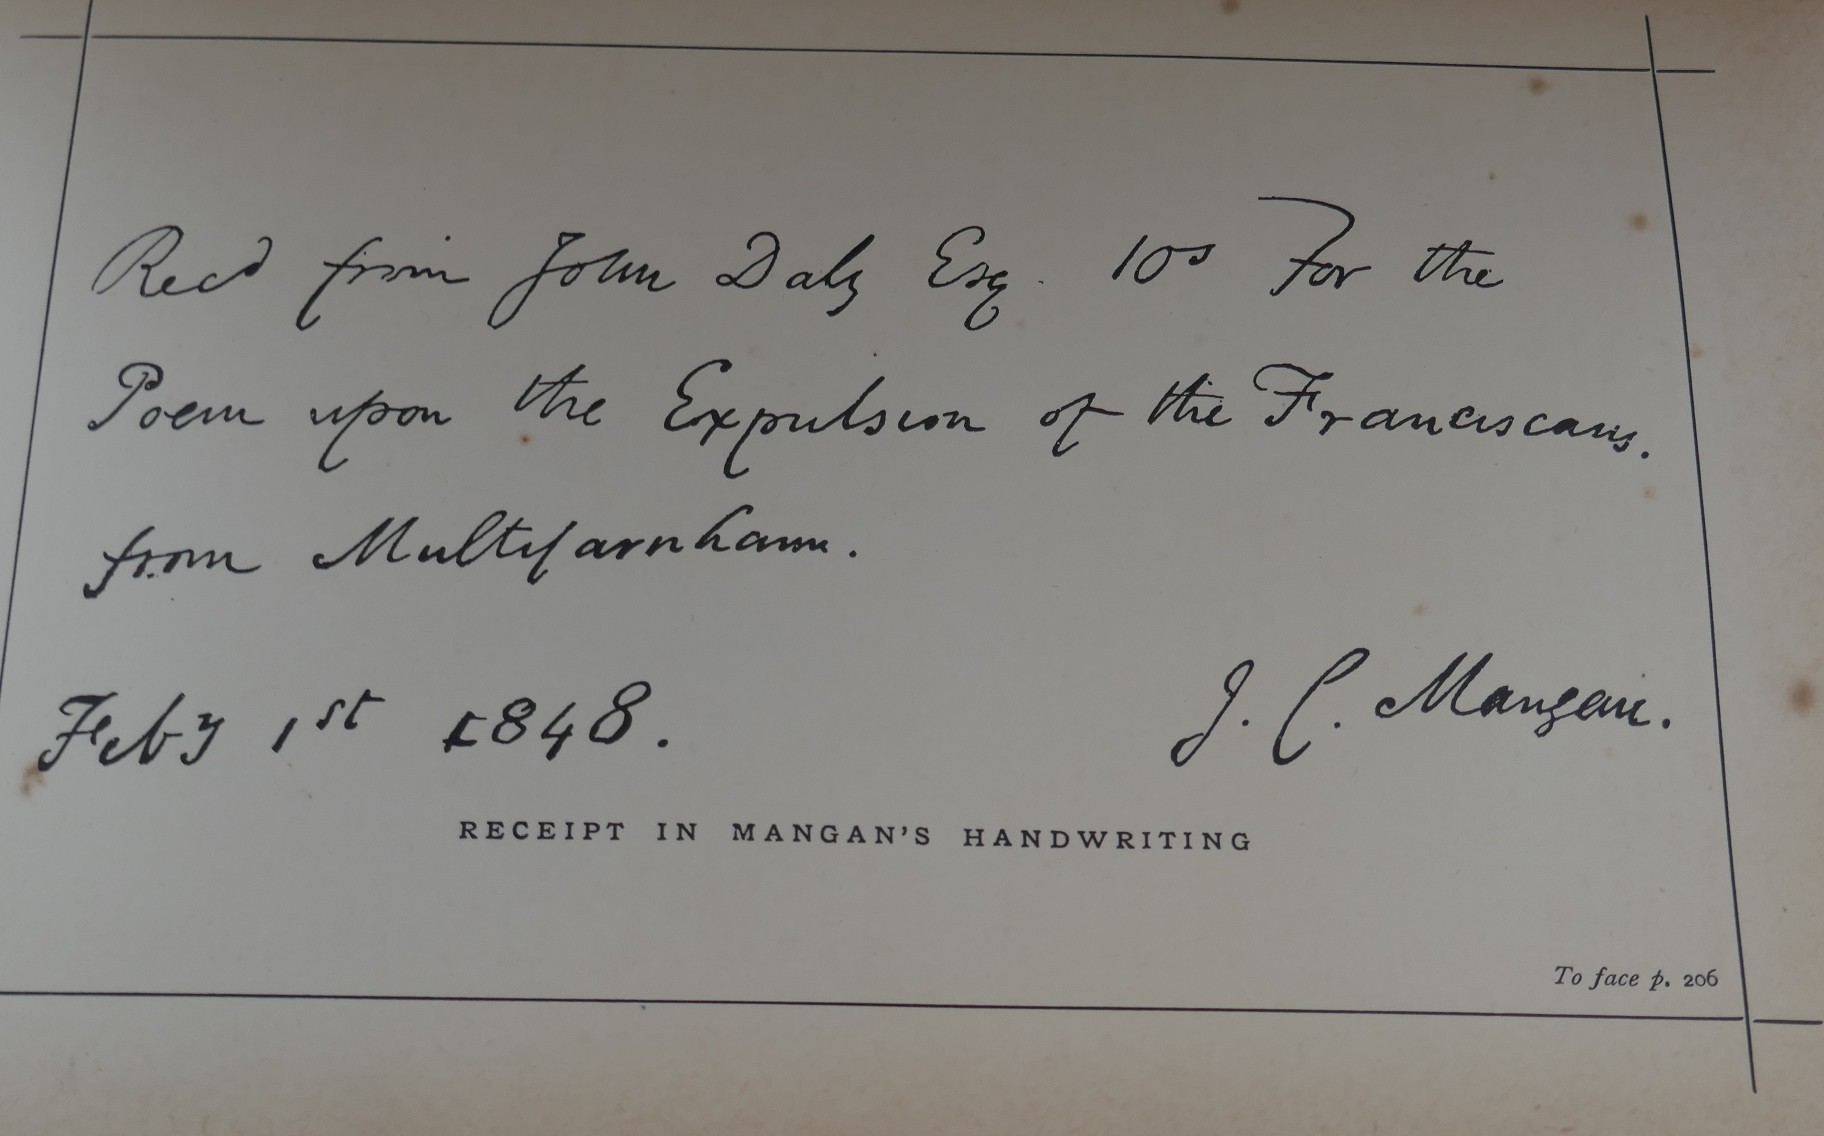 Recd from John Daly Esq. 10s For the
Poem upon the Expulsion of the Franciscans.
from Multifarnham.
Feby 1st 1848.
J. C. Mangan.
RECEIPT IN MANGAN'S HANDWRITING
To face p. 206